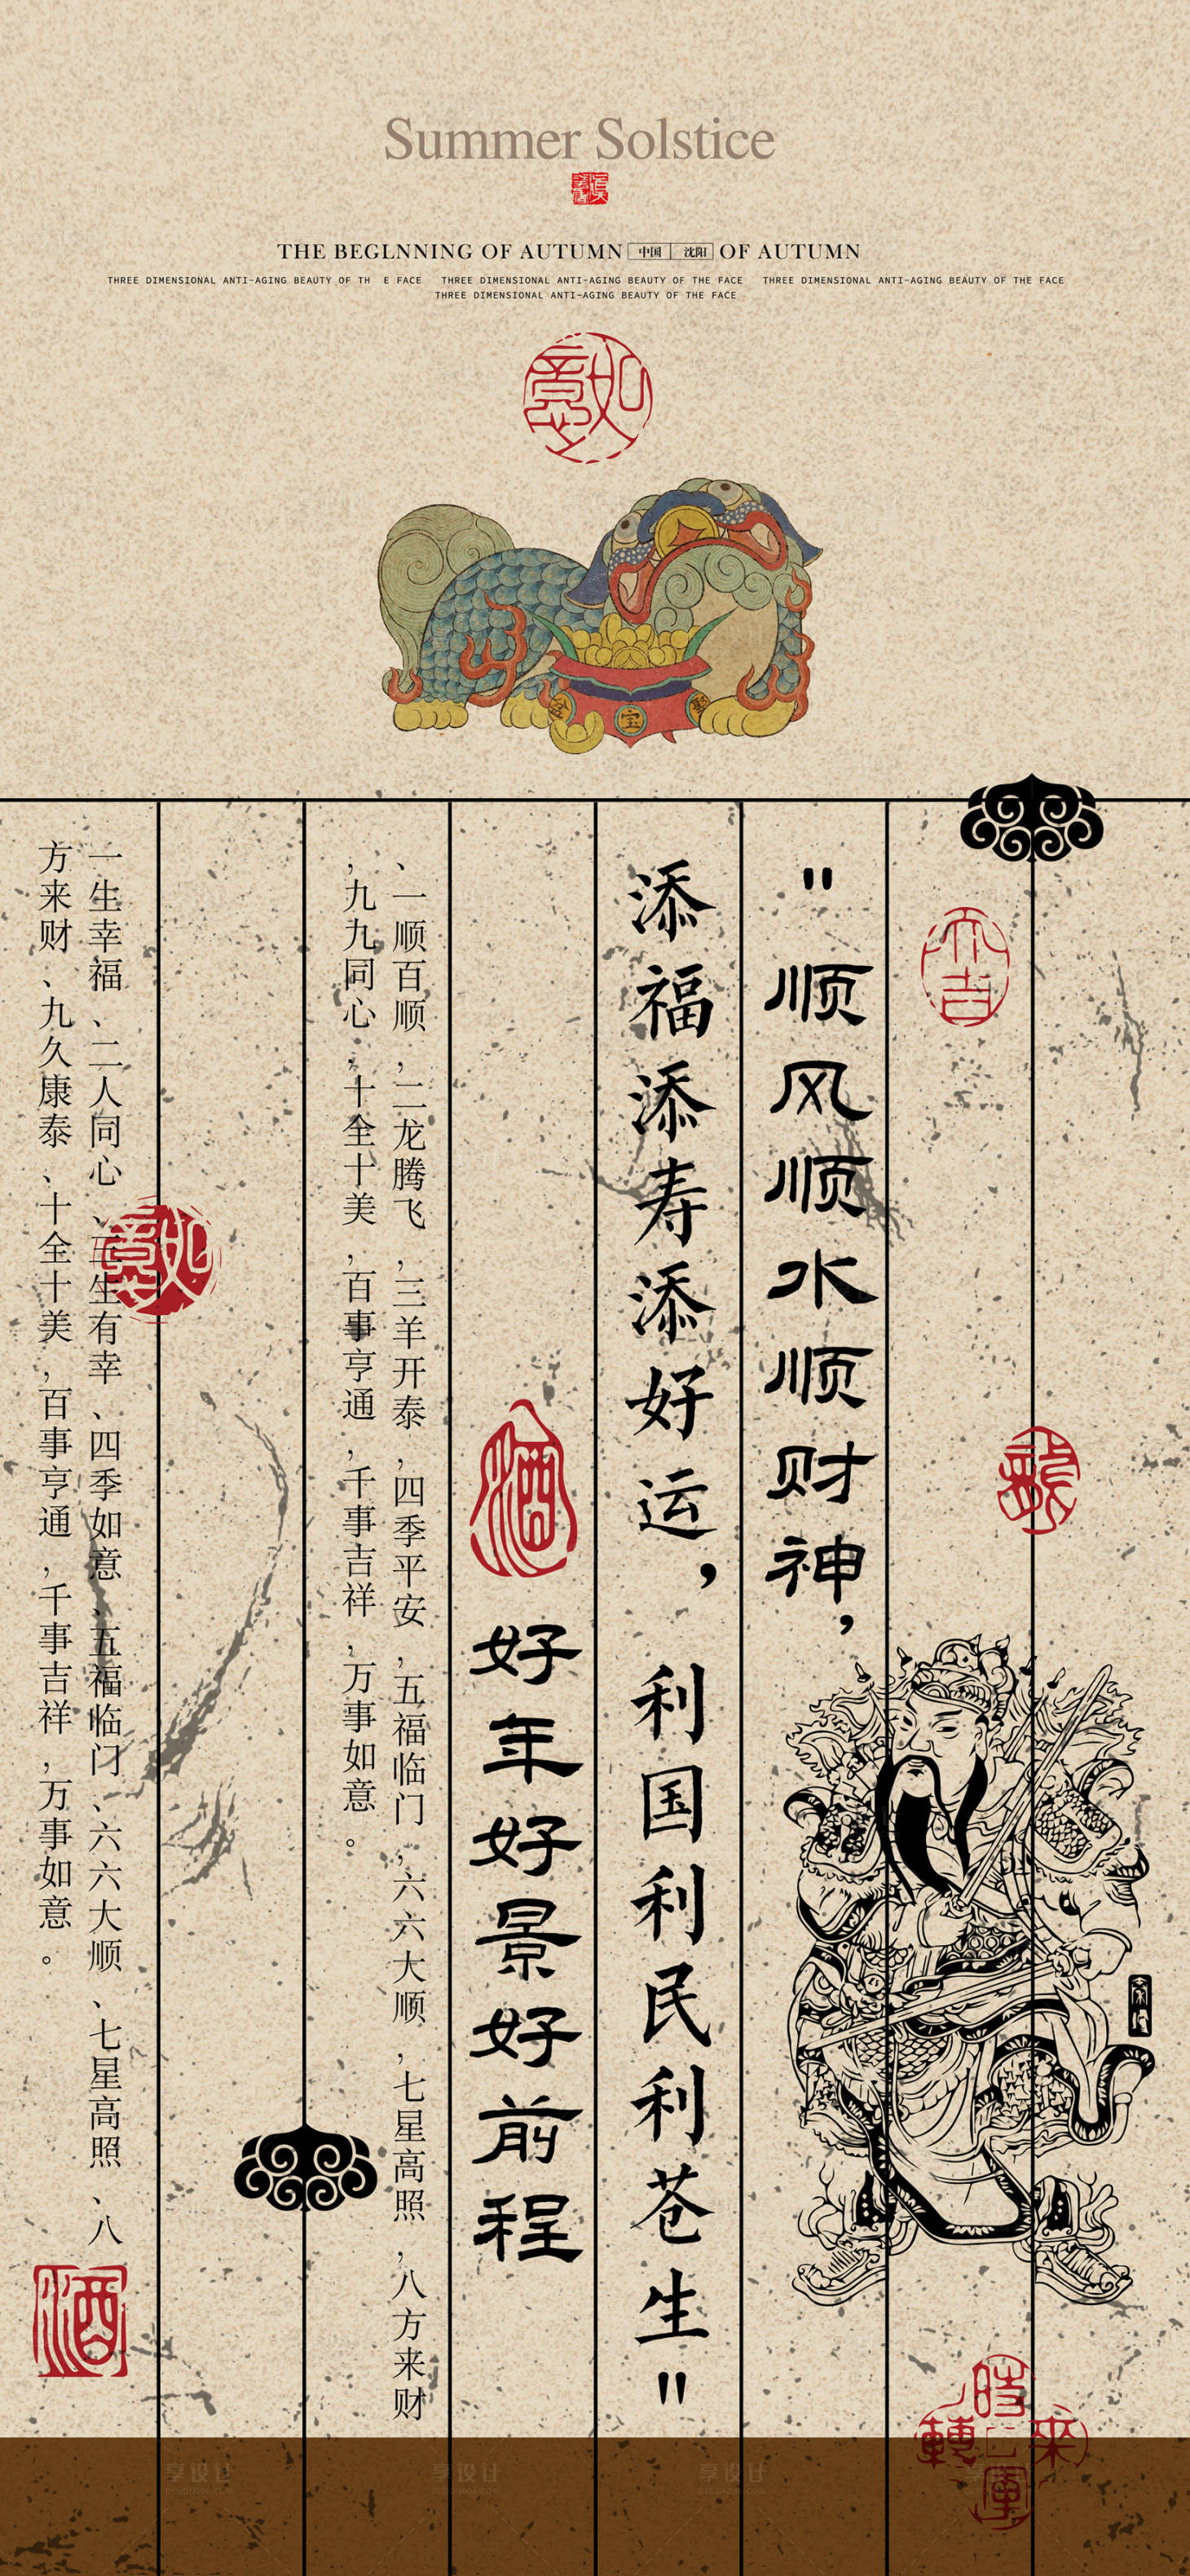 Summer Solstice
THE BEGLNNING OF AUTUMN 中国 沈阳 OF AUTUMN
THREE DIMENSIONAL ANTI-AGING BEAUTY OF TH E FACE THREE DIMENSIONAL ANTI-AGING BEAUTY OF THE FACE THREE DIMENSIONAL ANTI-AGING BEAUTY OF THE FACE
THREE DIMENSIONAL ANTI-AGING BEAUTY OF THE FACE
如意
聚宝盆
大吉
龍
"顺风顺水顺财神，
添福添寿添好运，利国利民利苍生"
酒
好年好景好前程
、一顺百顺，二龙腾飞，三羊开泰，四季平安，五福临门，六六大顺，七星高照，八方来财
，九九同心，十全十美，百事亨通，千事吉祥，万事如意。
一生幸福、二人同心、三生有幸、四季如意、五福临门、六六大顺、七星高照、八
方来财、九久康泰、十全十美，百事亨通，千事吉祥，万事如意。
如意
酒
時来運轉
享设计
享设计
享设计